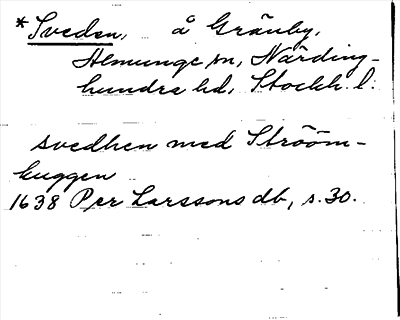 *Sveden, å Gränby,
Almunge sn, Närding-
hundra hd, Stockh. l.
svedhen med Strööm-
kuggen
1638 Per Larssons db, s. 30.